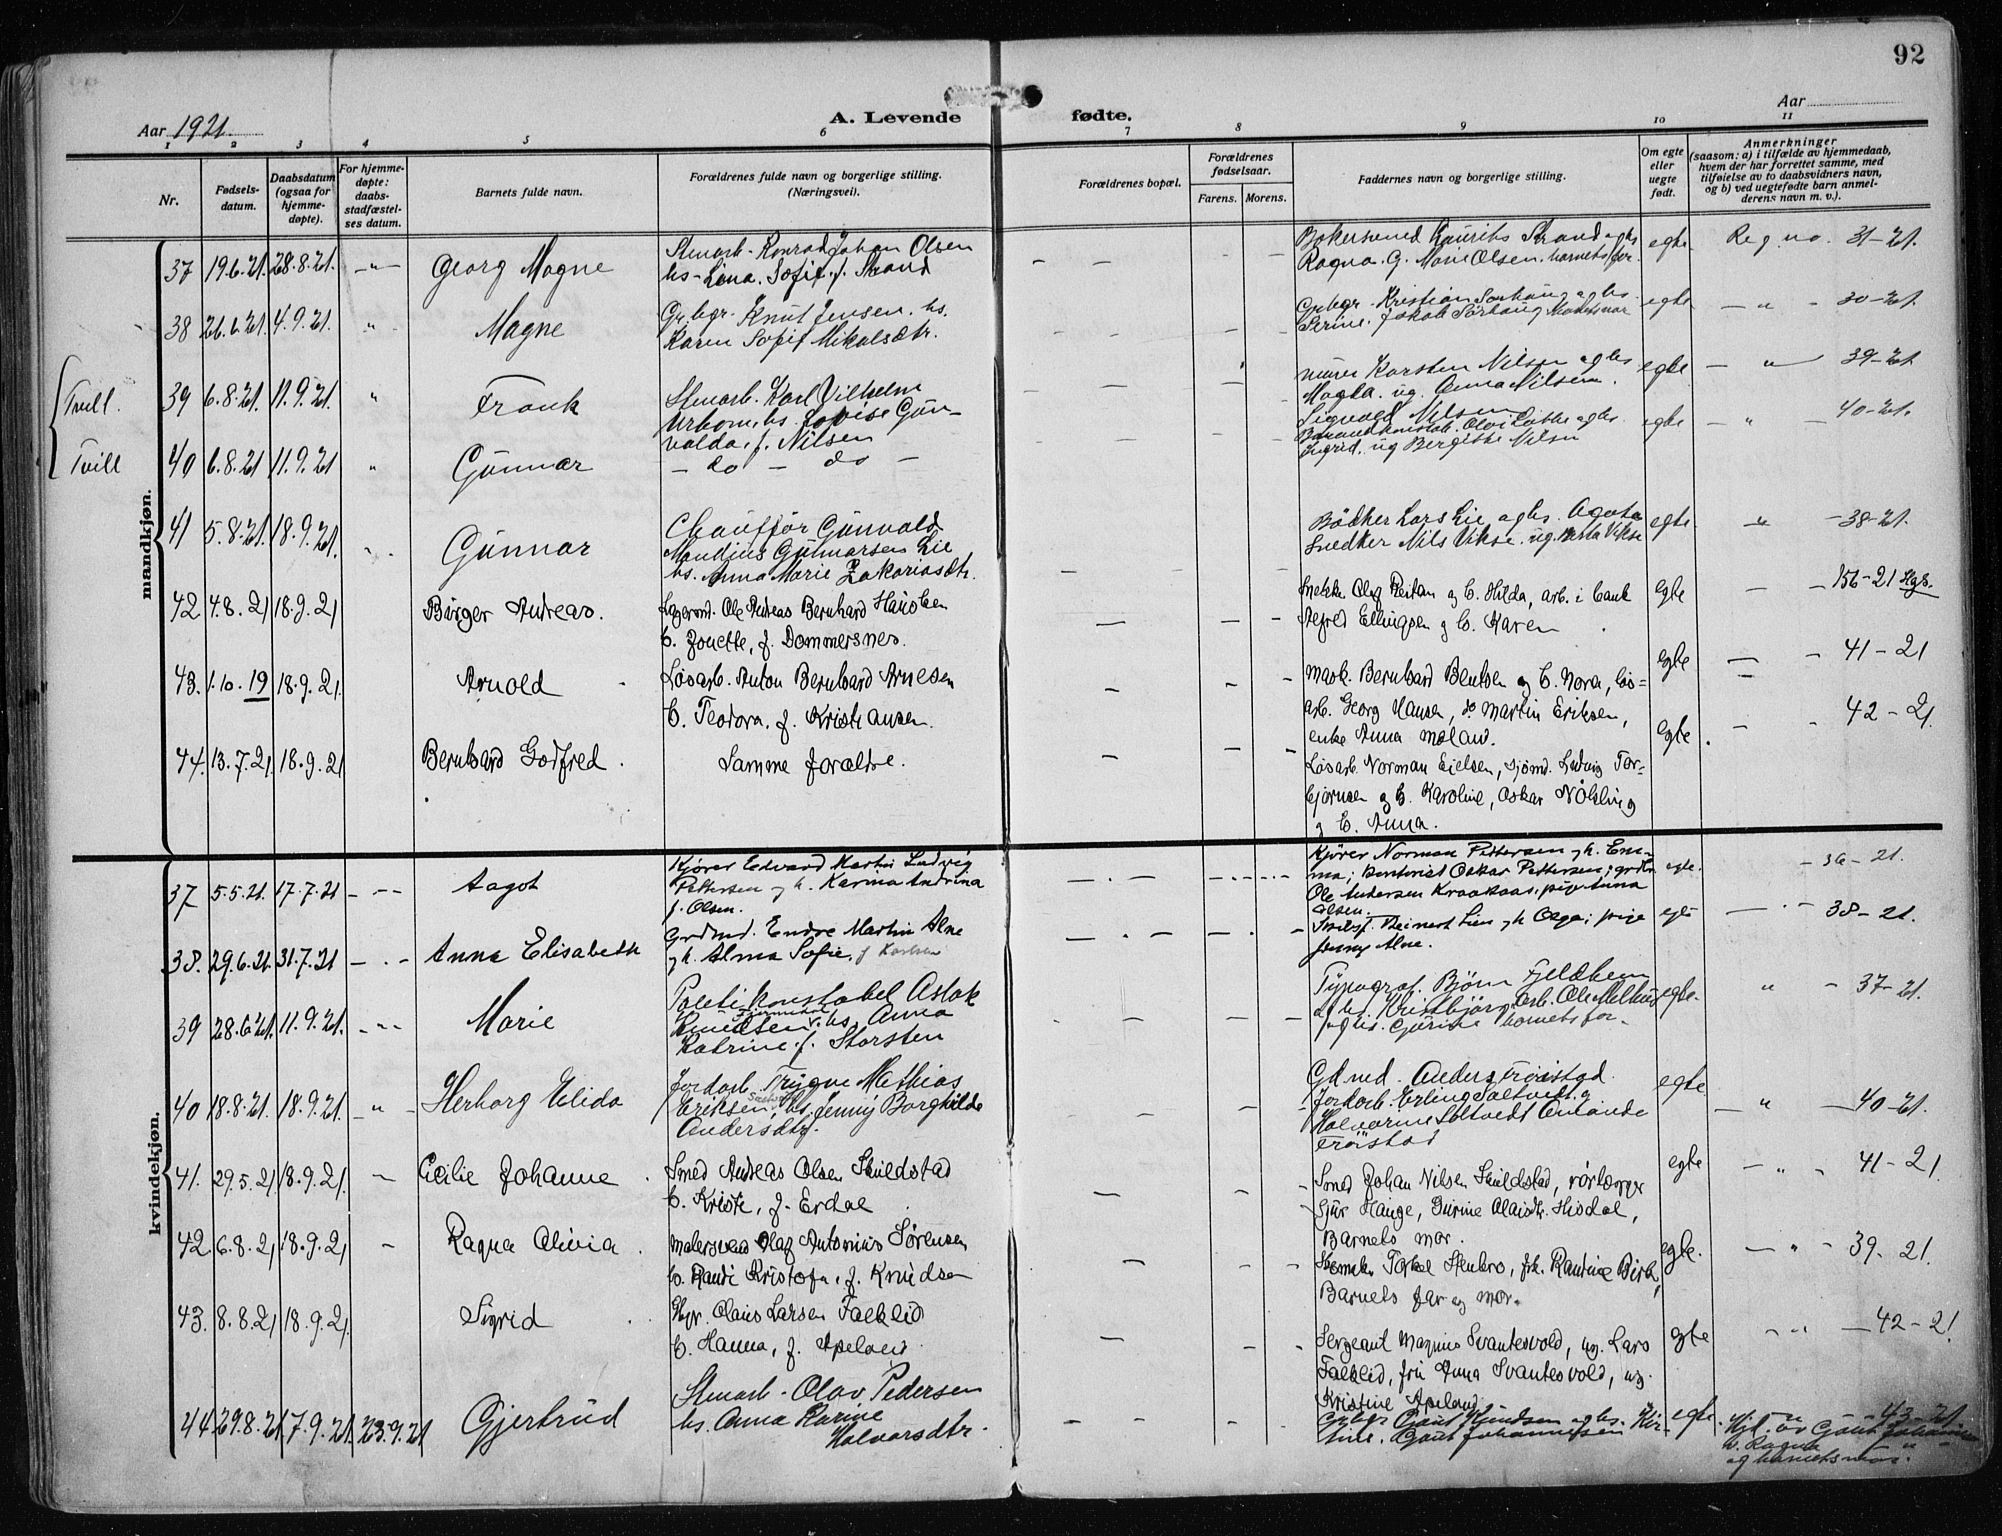 92
Aar 1921. A. Levende fødte. Aar
1 2 3 4 5 6 7 8 9 10 11
Nr.
Fødsels-
datum.
Daabsdatum
(ogsaa for
hjemme-
døpte).
For hjemme-
døpte:
daabs-
stadfæstel-
ses datum.
Barnets fulde navn.
Forældrenes fulde navn og borgerlige stilling.
(Næringsvei).
Forældrenes bopæl.
Forældrenes
fødselsaar.
Farens. Morens.
Faddernes navn og borgerlige stilling.
Om egte
eller
uegte
født.
Anmerkninger
(saasom: a) i tilfælde av hjemmedaab,
hvem der har forrettet samme, med
tilføielse av to daabsvidners navn,
og b) ved uegtefødte barn anmel-
derens navn m. v.).
mandkjøn.
37 19.6.21. 28.8.21. - " - Georg Magne
Stenarb. Konrad Johan Olsen
hs. Lina. Sofie. f. Strand
Laurits Strand og hs
Ragna. G. Marie Olsen. barnets for.
egte Reg. no. 31-21.
38 26.6.21. 4.9.21. " Magne
Grbgr. Knut Jensen. hs.
Karen Sofie Mikalsdtr.
Grbgr. Kristian Sørhaug og hs.
Serine. Jakob Sørhaug
egte - " - 30-21.
Tvill.
39 6.8.21. 11.9.21. " Frank
Stenarb. Karl Vilhelm
hs. Lovise Gun-
valda. f. Nilsen
murer Karsten Nilsen og hs
Magda. ug. Anna Nilsen.
egte - " - 39-21
Tvill
40 6.8.21 11.9.21 " Gunnar
- do - do -
Sigvald Nilsen
og hs.
Ingrid. ug Bergitte Nilsen
egte - " - 40-21.
41 5.8.21. 18.9.21. Gunnar
Chauffør Gunvald
Mandius Gunnarsen Lie
hs. Anna Marie Zakariasdtr.
Bødker Lars Lie og hs. Agata
Snedker Nils Vikse. ug. Berta Vikse
egte. " - 38-21.
42 4.8.21 18.9.21 Birger Andreas.
Lagerm. Ole Andreas Bernhard Hansen
h. Jonette, f. Dommersnes.
Snekker Olaf Reitan og h. Hilda, arb. i bank
Alfred Ellingsen og h. Karen
egte - - 156-21 Hgs.
43. 1.10.19 18.9.21. Arnold
Løsarb. Anton Bernhard Arnesen
h. Teodora, f. Kristiansen.
Mask. Bernhard Bentsen og h. Nora, løs-
arb. Georg Hansen, do Martin Eriksen,
enke Anna Meland.
egte - - 41-21
44. 13.7.21. 18.9.21 Bernhard Godfred.
Samme forældre.
Løsarb. Norman Eielsen, sjømd. Ludvig Tor-
bjørnsen og h. Karoline, Oskar
og h. Anna.
egte. - - 42-21.
kvindekjøn.
37 5.5.21. 17.7.21 - - - Aagot
Kjører Edvard Martin Ludvig
Pettersen og h. Karina Andrina
f. Olsen.
Kjører Norman Pettersen og h. Em-
ma; Oskar Pettersen;
Ole Andersen Kraakaas, pige Anna
Olsen.
egte. - 36-21.
38. 29.6.21. 31.7.21 - . - Anna Elisabeth
Grdmd. Endre Martin Alne
og h. Alma Sofie, f Karlsen
Reinert Lien og h Olga; pige
Jenny Alne.
egte - . - 38-21.
39 28.6.21. 11.9.21. - - - Marie
Politikonstabel Aslak
Knudsen hs. Anna
Katrine. f. Storsten
Typograf. Bjørn Fjeldheim
og hs. Kristbjørg. arb. Ole
og hs. Gurine barnets for.
egte. " - 37-21.
40 18.8.21. 18.9.21. - " - Herborg Elida
Jordarb. Trygve Mathias
Eriksen, hs. Jenny Borghilde
Andersdtr.
Gdmd. Anders Frøistad.
Jordarb. Erling Saltvedt og
Halvarine Saltvedt
Frøistad
egte - " - 40-21.
41. 29.5.21 18.9.21. - Cecilie Johanne.
Smed Andreas Olsen Skuldstad
h. Kristi, f. Erdal
Smed Johan Nilsen Skuldstad, rørlægger
Sjur Hauge, Gurine Olaisdtr. Hisdal,
Barnets mor.
egte - " - 41-21
42 6.8.21 18.9.21 - Ragna Olivia.
Malersvend Olaf Antonius Sørensen
h. Randi Kristofa, f. Knudsen
Torkel Stenbro, frk. Randine Birk,
Barnets far og mor.
egte. - " - 39.21.
43. 8.8.21 18.9.21. Sigrid
Olais Larsen Falklid
h. Hanna, f. Apeland
Sergeant Magnus Svantesvold, ug. Lars
Falklid, fru Anna Svantesvold, ug.
Kristine Apeland.
egte - " - 42-21.
44. 29.8.21. 7.9.21. 23.9.21 Gjertrud
Stenarb. Olav Pedersen
hs. Anna Karine
Halvorsdtr.
Grbgr Gaut Knudsen og hs. Kir-
stine. Gaut Johannesen
egte. " 43-21.
Hjd. av Gaut Johannesen
v. Ragna " "
og barnets mor.